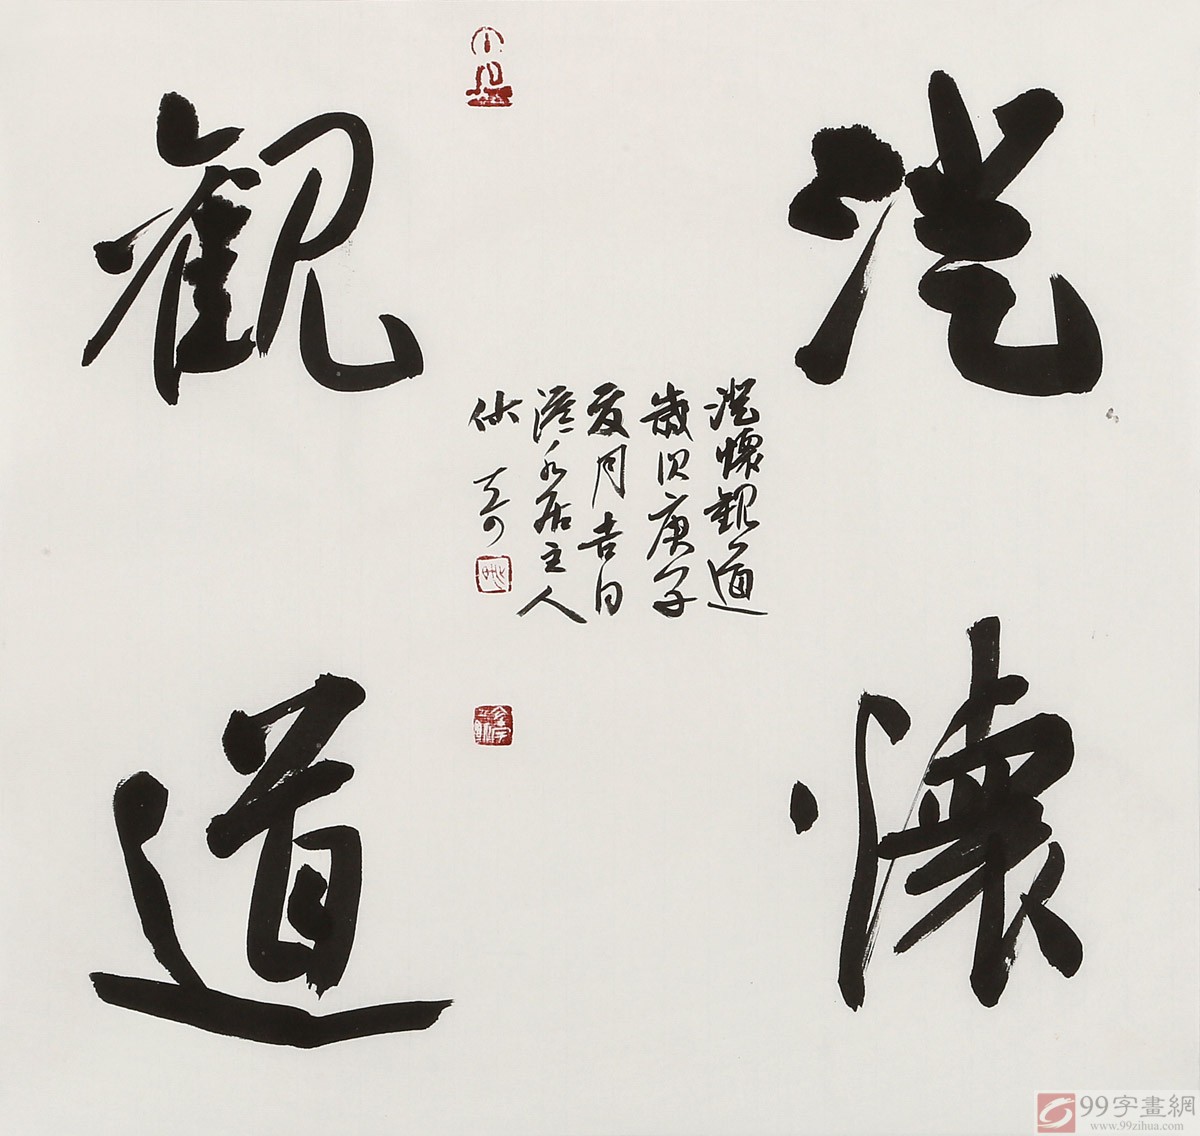 澄懷
觀道
澄懷觀道
歲次庚子
夏月吉日
澹水居主人
99字畫網
www.99zihua.com